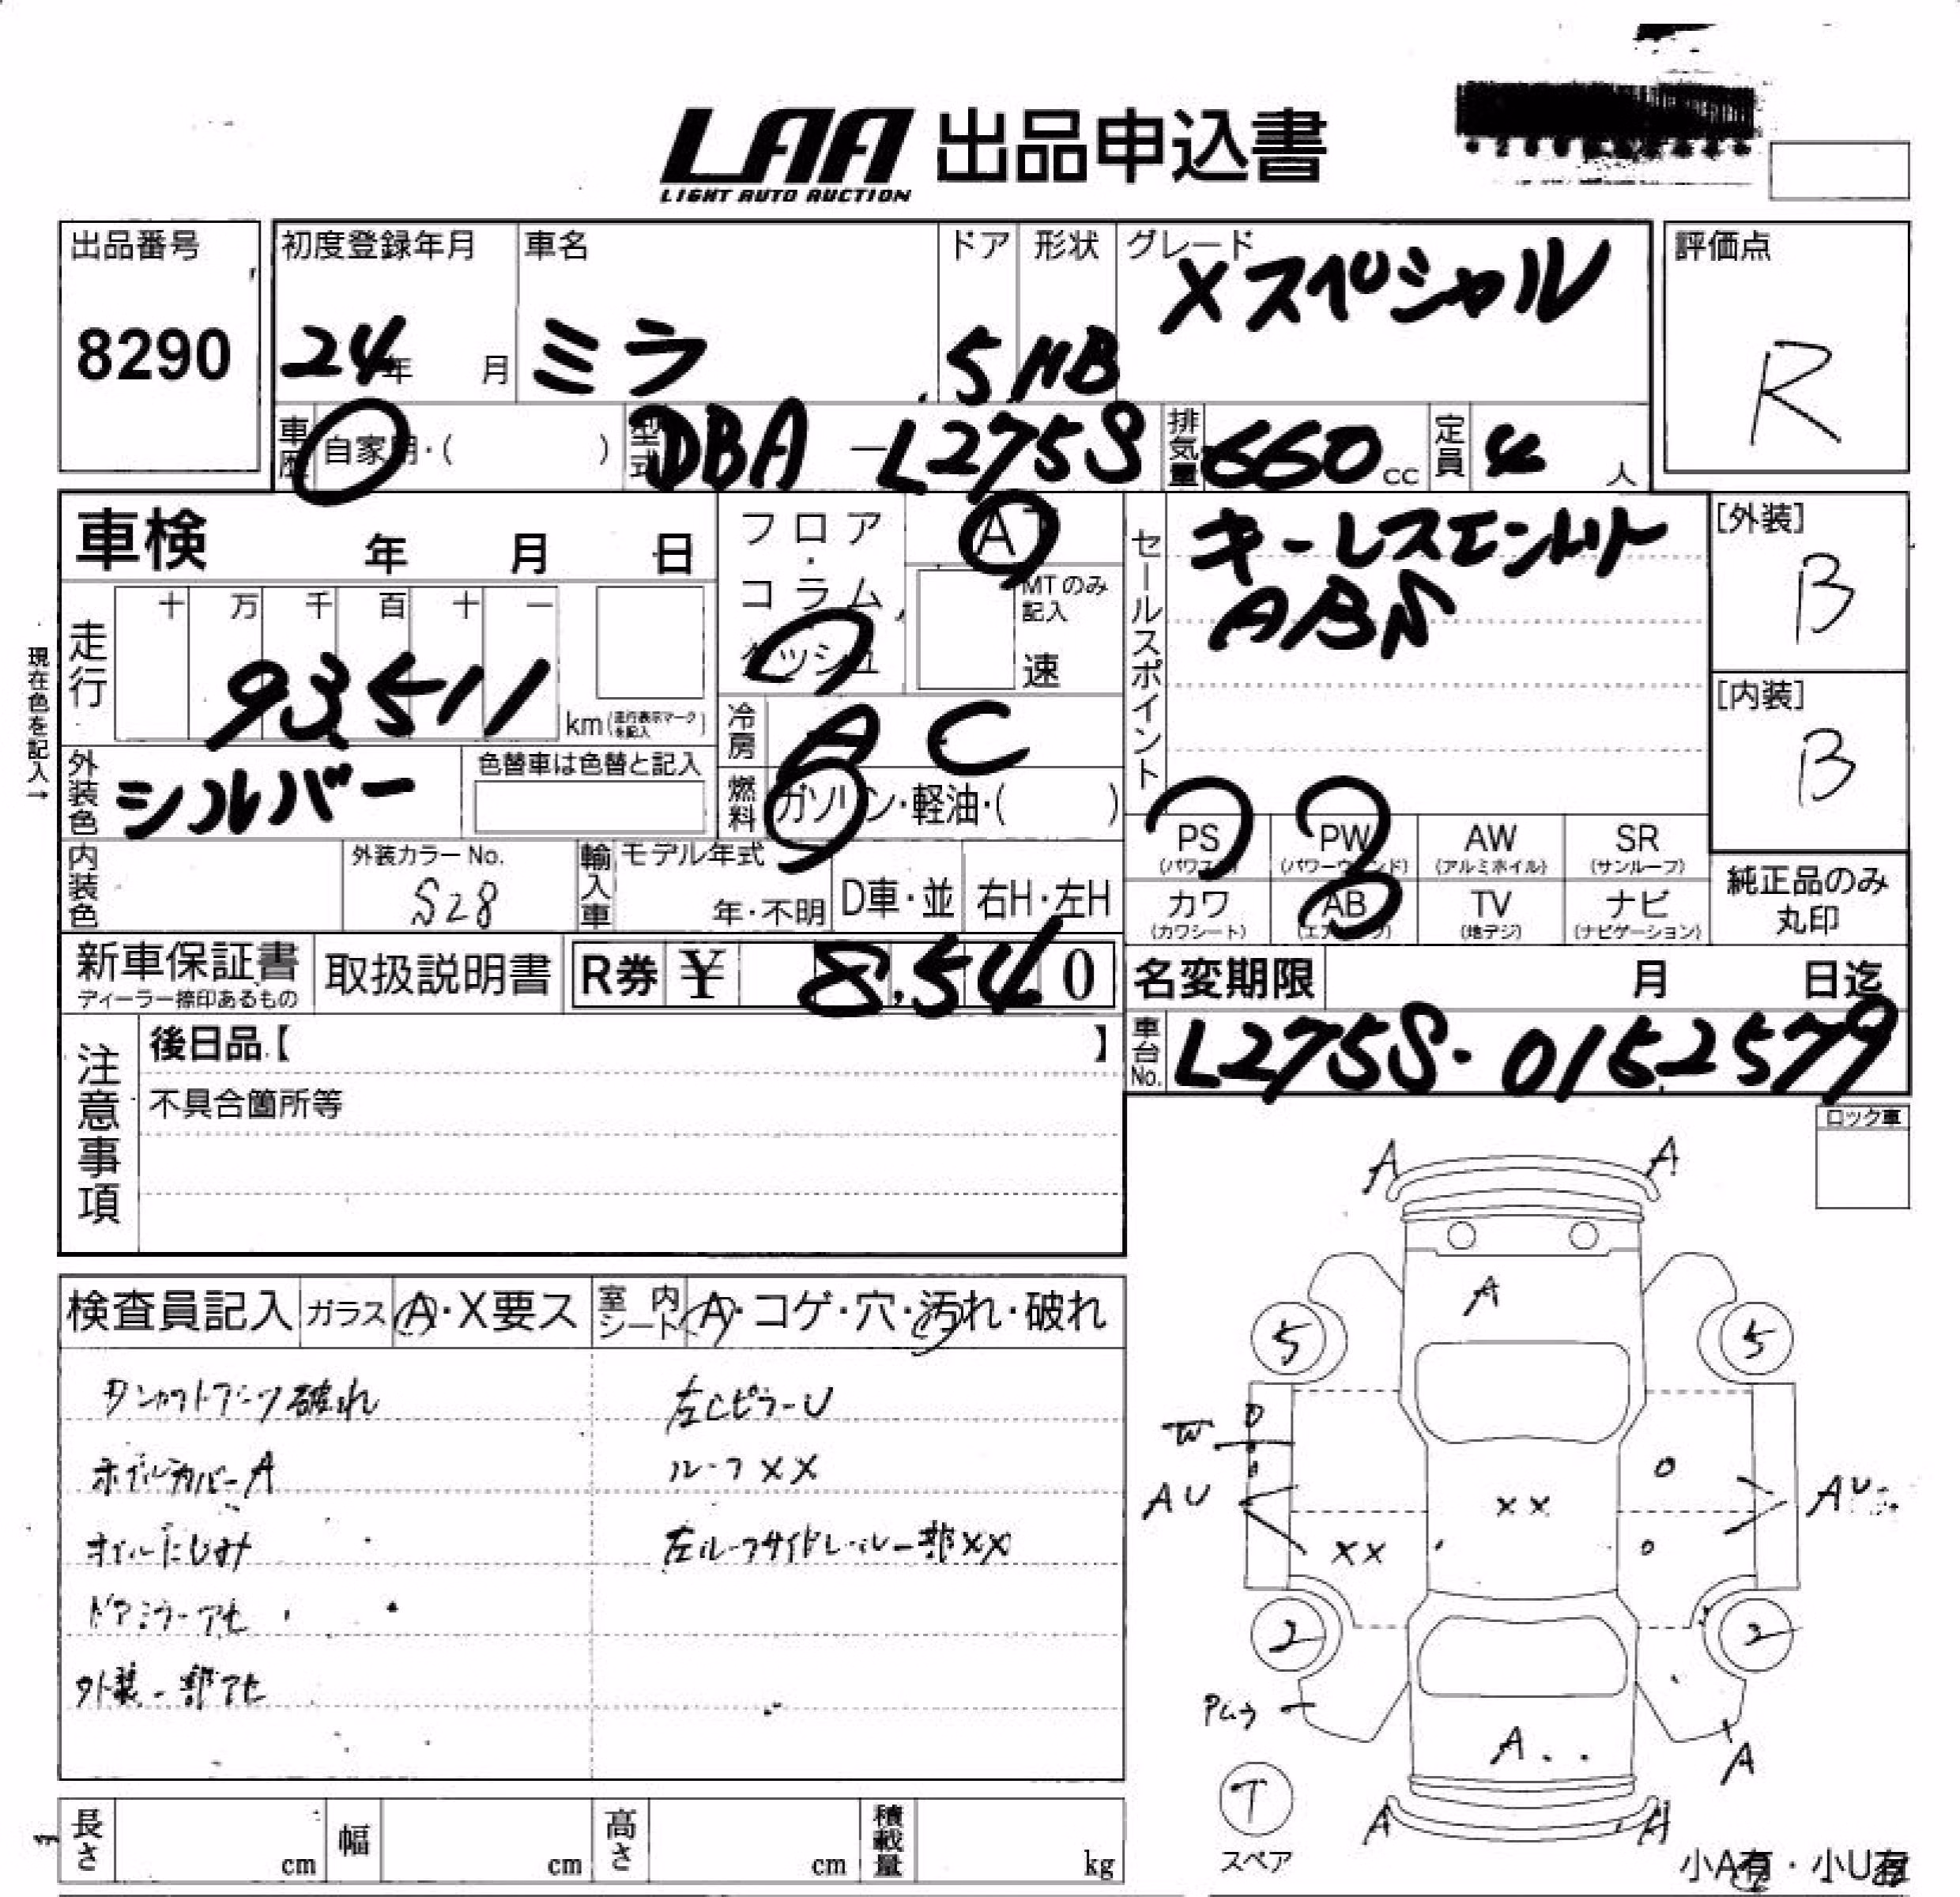 LAA 出品申込書
LIGHT AUTO AUCTION
出品番号 初度登録年月 車名 ドア 形状 グレード 評価点
8290 24年 月 ミラ 5 HB Xスペシャル R
車歴 自家用・( ) 型式 DBA-L275S 排気量 660cc 定員 4人
車検 年 月 日
フロア・コラム
ダッシュ
AT
MTのみ記入
速
セールスポイント
キーレスエントリー
ABS
[外装]
B
[内装]
B
現在色を記入→
走行 十 万 千 百 十 一
93,511 km(走行表示マークを記入)
冷房 AC
外装色 シルバー 色替車は色替と記入
燃料 ガソリン・軽油・( )
PS (パワステ) PW (パワーウィンド) AW (アルミホイル) SR (サンルーフ)
カワ (カワシート) AB (エアバッグ) TV (地デジ) ナビ (ナビゲーション)
純正品のみ丸印
内装色 外装カラーNo. S28 輸入車 モデル年式 年・不明 D車・並 右H・左H
新車保証書 ディーラー捺印あるもの 取扱説明書 R券 ¥ 8,540
名変期限 月 日迄
車台No. L275S-0152579
注意事項
後日品【 】
不具合箇所等
ロック車
検査員記入 ガラス A・X要ス 室内シート A・コゲ・穴・汚れ・破れ
破れ 左CピラーU
ホイルカバーA ルーフXX
オイルにじみ 左ルーフサイドレール一部XX
ドアミラーアセ
外装一部アセ
A A
A
5 5
W
AU AU
XX
XX
2 2
A
A
A A
T
スペア
小A有・小U有
長さ cm 幅 cm 高さ cm 積載量 kg